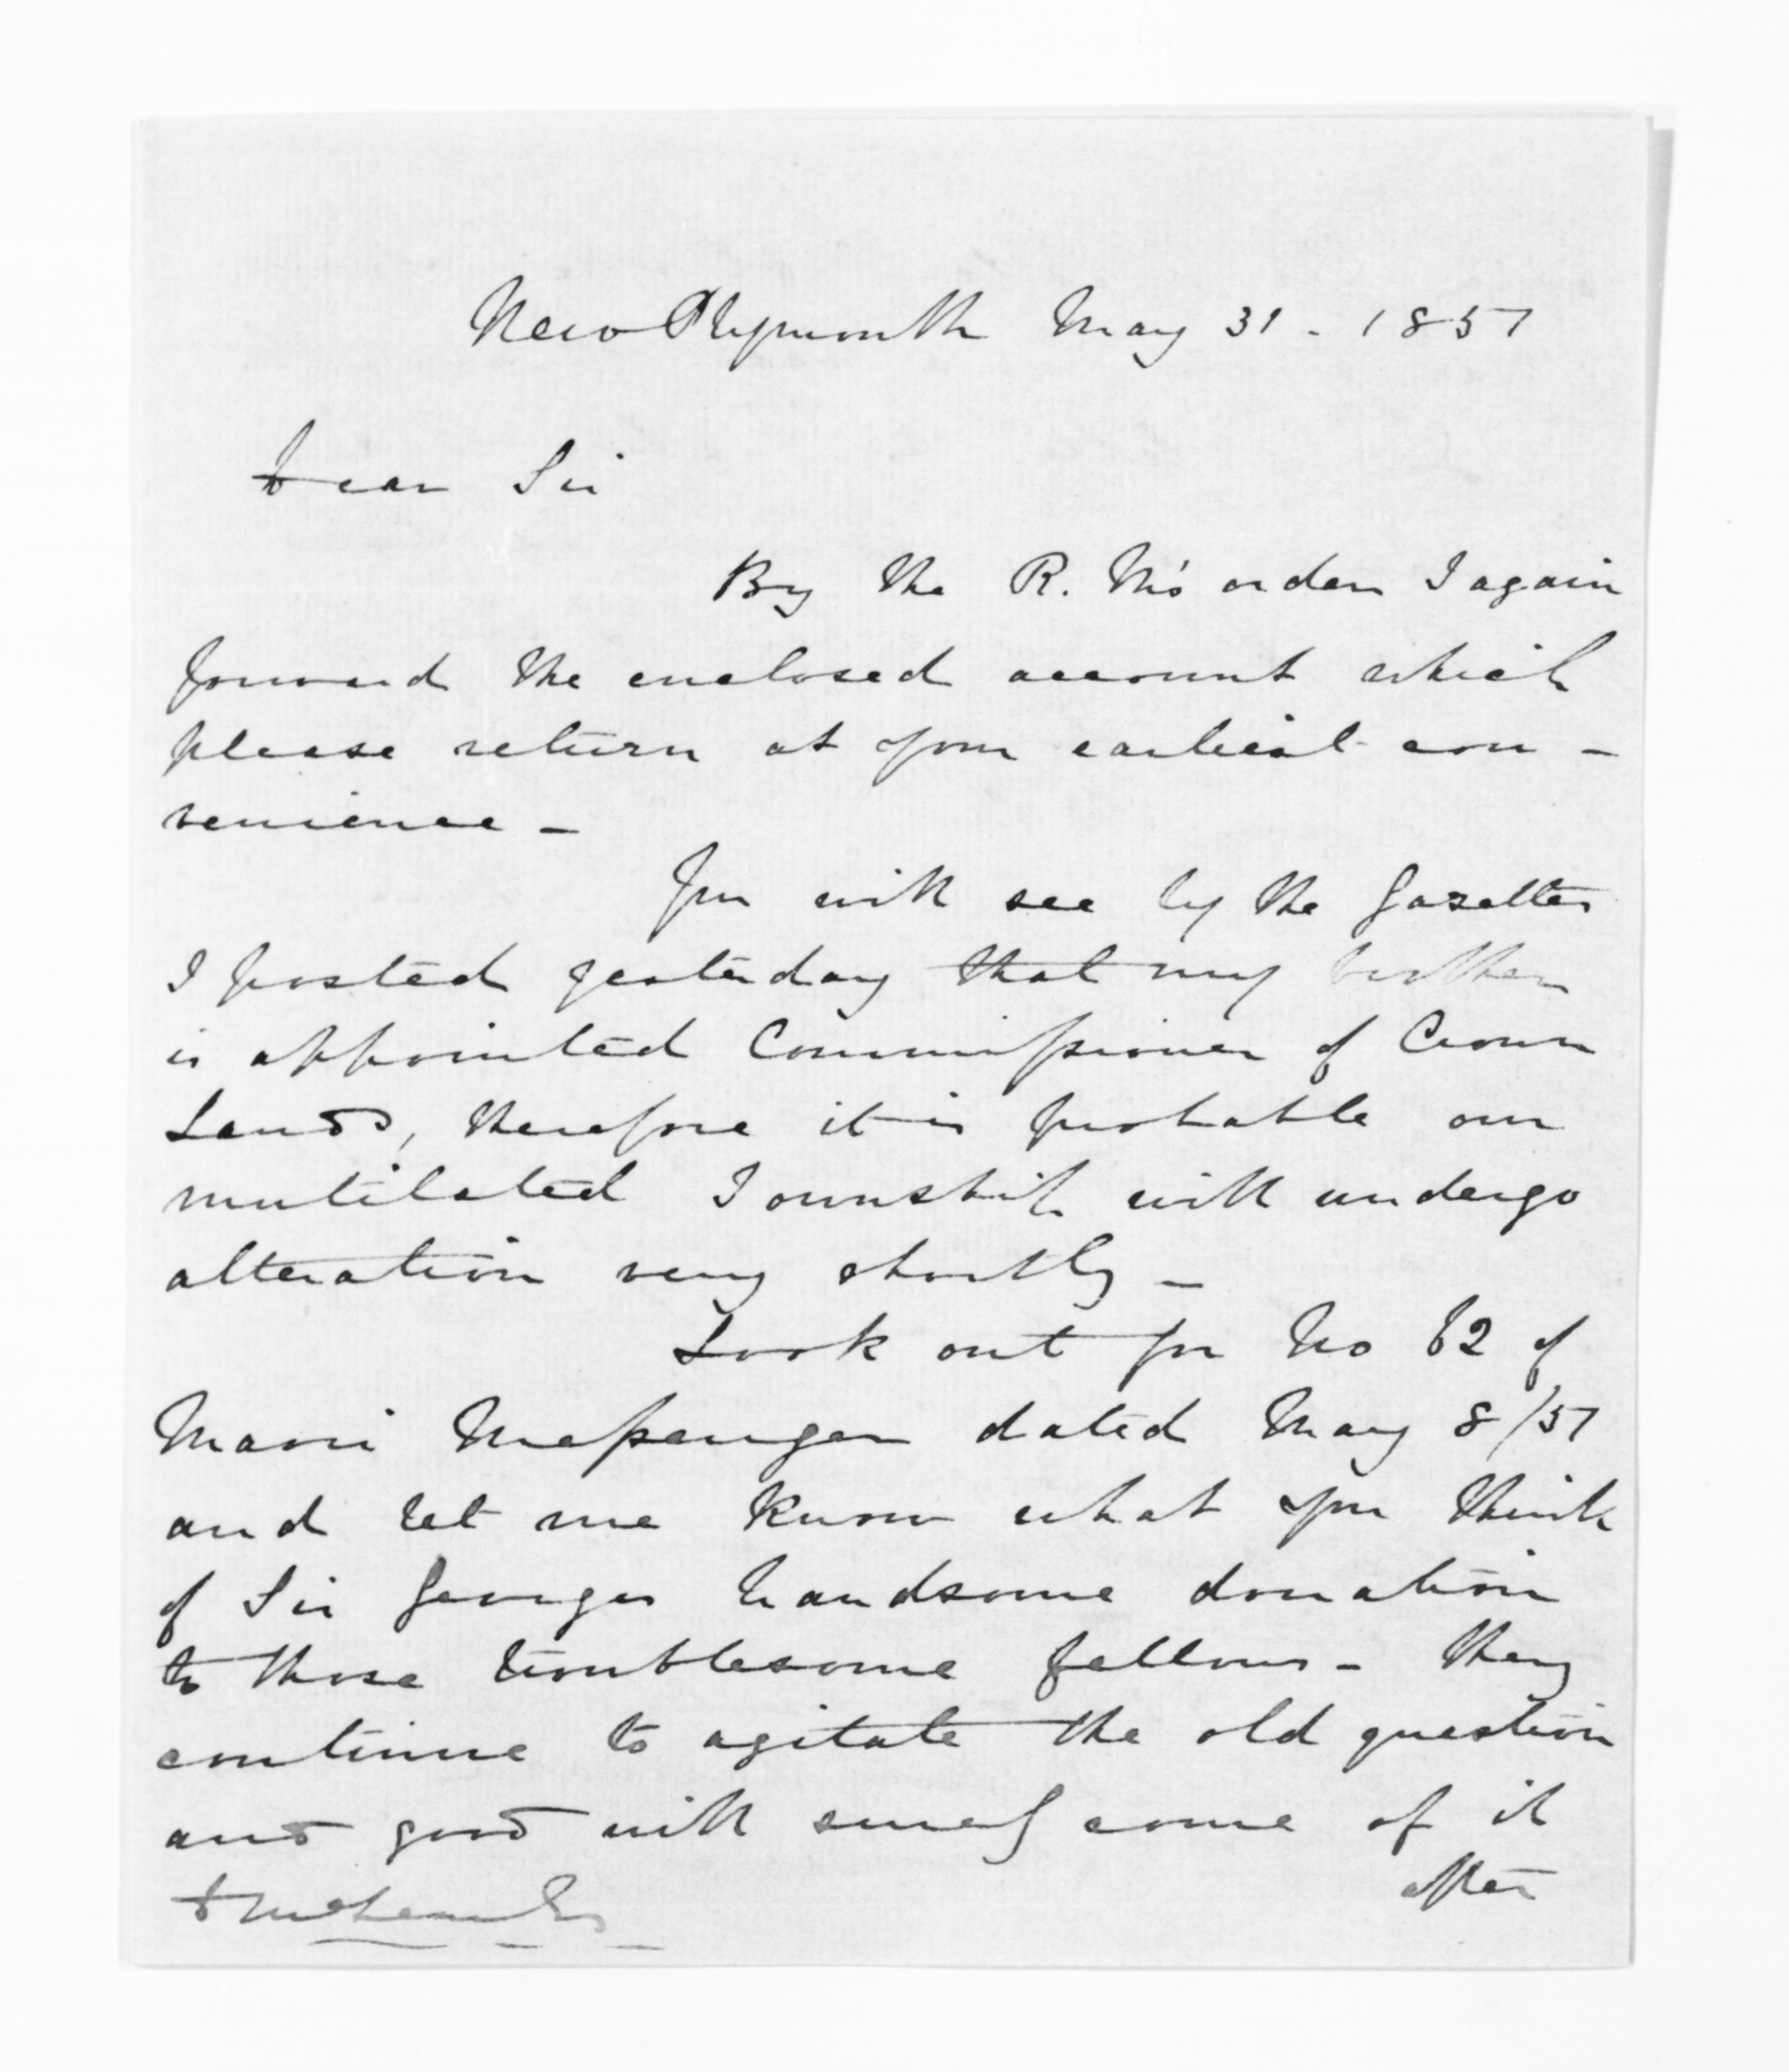 New Plymouth May 31 - 1851
Dear Sir
By the R. M's order I again
forward the enclosed account which
please return at your earliest con -
venience -
You will see by the Gazette
I posted yesterday that my brother
is appointed Commissioner of Crown
Lands, therefore it is probable our
mutilated Township will undergo
alteration very shortly -
Look out for No 62 of
Maori Messenger dated May 8/51
and let me know what you think
of Sir Georges handsome donation
to those troublesome fellows - they
continue to agitate the old question
and good will surely come of it
after
D McLean Esq